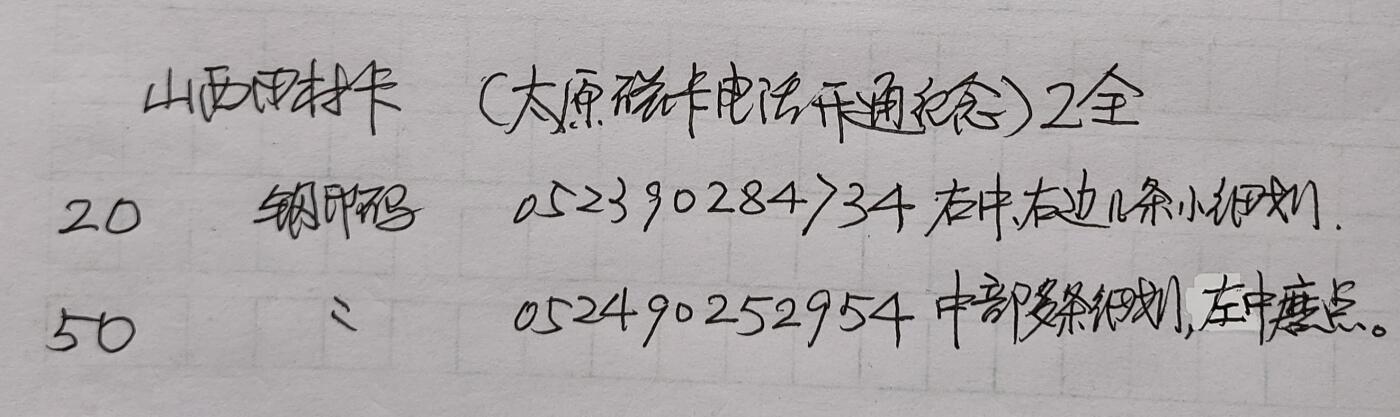 山西田村卡 (太原磁卡电话开通纪念)2全
20 钢印码 052390284734 右中,右边几条小细划.
50 〃 052490252954 中部多条细划,左中磨点。